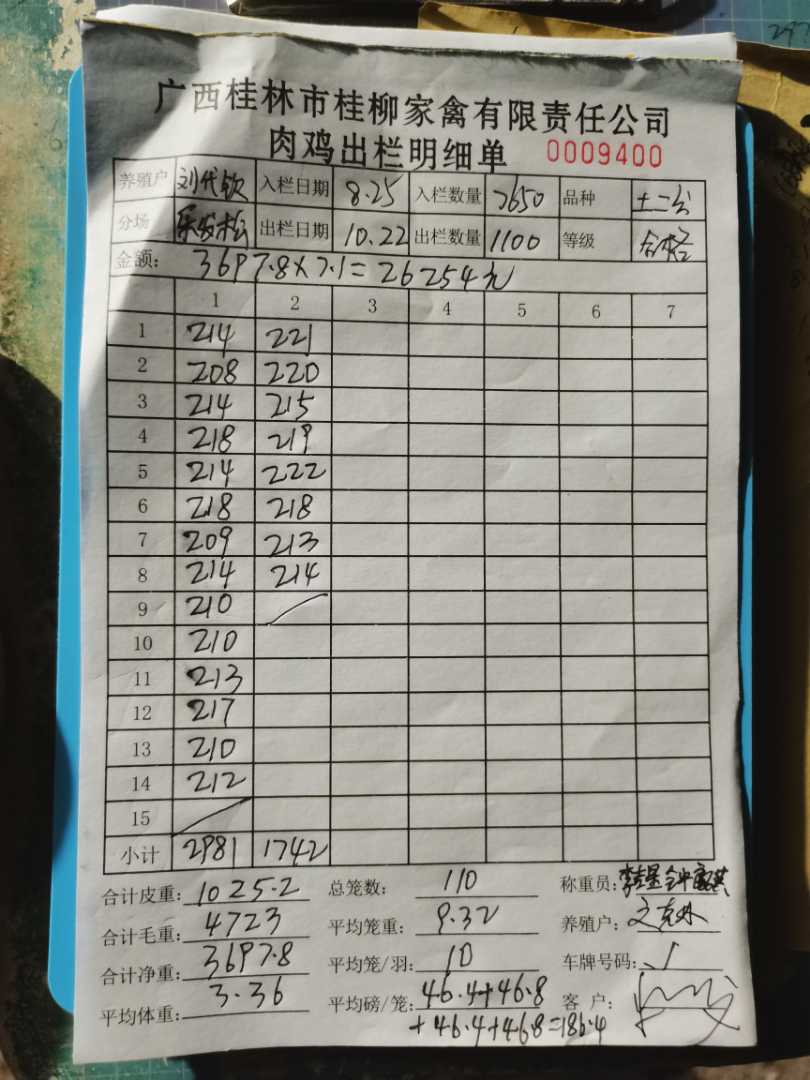 广西桂林市桂柳家禽有限责任公司
肉鸡出栏明细单 0009400
养殖户 刘代钦 入栏日期 8.25 入栏数量 7650 品种 土二公
分场 出栏日期 10.22 出栏数量 1100 等级 合格
金额: 3697.8×7.1=26254元
1 2 3 4 5 6 7
1 214 221
2 208 220
3 214 215
4 218 219
5 214 222
6 218 218
7 209 213
8 214 214
9 210
10 210
11 213
12 217
13 210
14 212
15
小计 2981 1742
合计皮重: 1025.2 总笼数: 110 称重员:
合计毛重: 4723 平均笼重: 9.32 养殖户:
合计净重: 3697.8 平均笼/羽: 10 车牌号码:
平均体重: 3.36 平均磅/笼: 46.4+46.8 客户:
+46.4+46.8=186.4